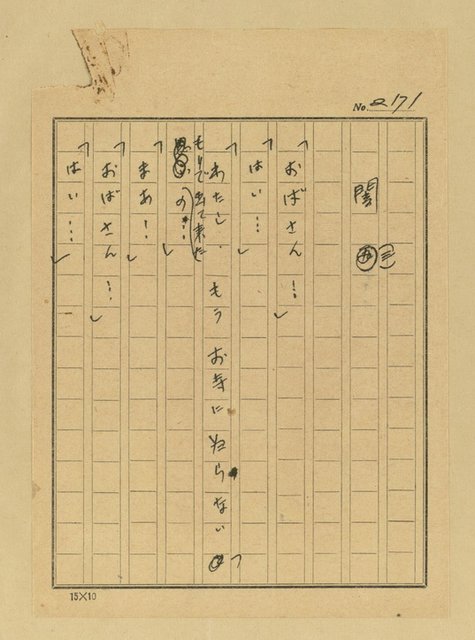 No. 2171
閨 五 三
「おばさん…」
「はい…」
「わたし、もうお寺に帰らない
もりで出て来た
の…」
「まあ…」
「おばさん…」
「はい…」
15×10